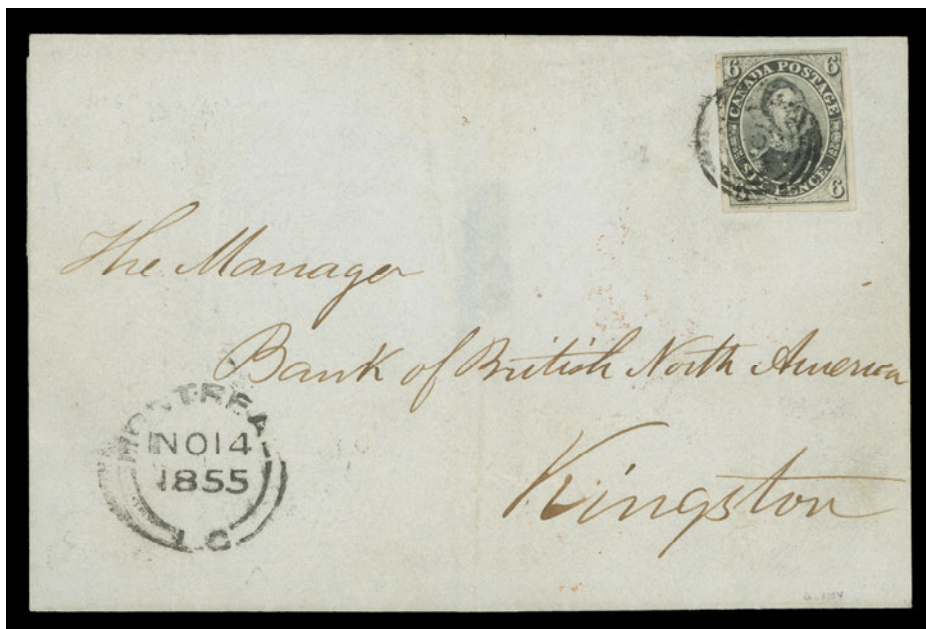 6 CANADA POSTAGE 6
SIX PENCE.
6 6
The Manager
Bank of British North America
Kingston
MONTREAL
NO 14
1855
L.C.